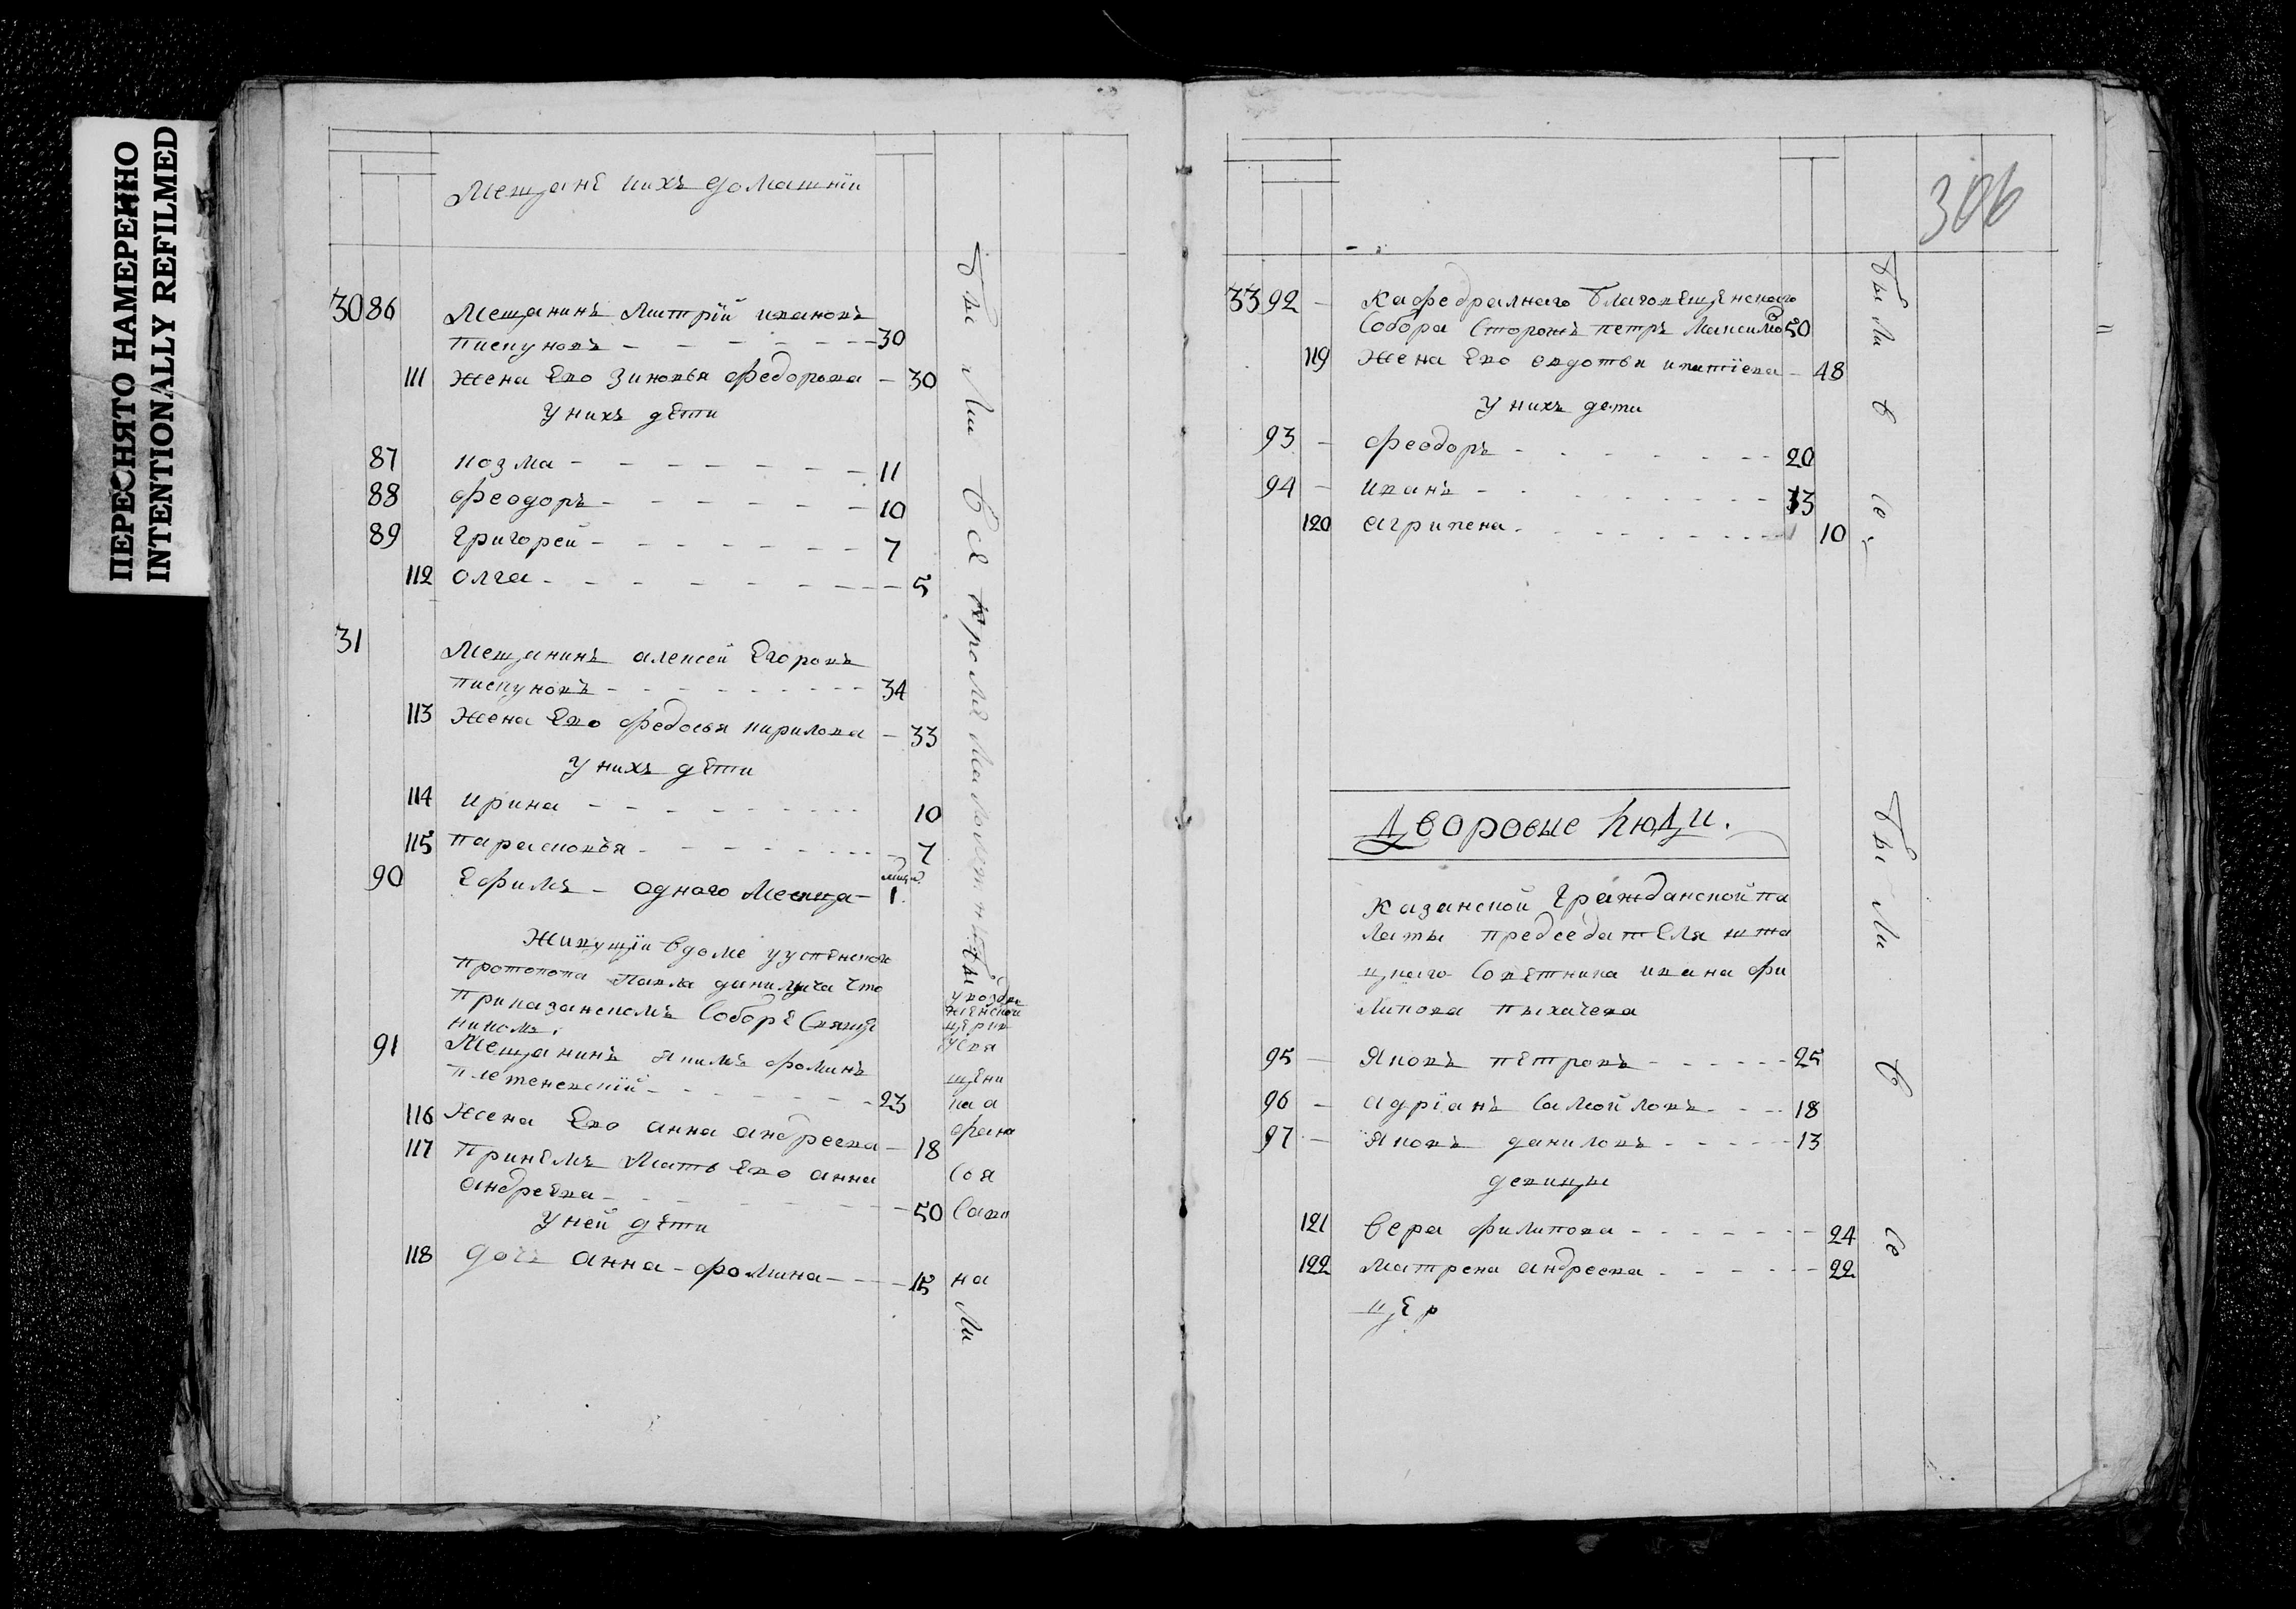 ПЕРЕСНЯТО НАМЕРЕННО
INTENTIONALLY REFILMED
Мещанѣ иихъ домашнїи
30 86 Мещанинъ Митрїй ивановъ
пискуновъ - 30
111 Жена Ево Зиновья Федорова - 30
У нихъ дѣти
87 козма - 11
88 Феодоръ - 10
89 Григорей - 7
112 Олга - 5
31 Мещанинъ алексей Егоровъ
пискуновъ - 34
113 Жена Ево Федосья кирилова - 33
У нихъ дѣти
114 ирина - 10
115 парасковья - 7
90 Ефимъ - одного Месица - 1.
Живущїи вдоме
протопопа Павла данилыча что
приказанскомъ Соборѣ Свяще
никомъ.
91 Мещанинъ Якимъ Фоминъ
Плетеневскїй - 23
116 Жена Ево анна андреева - 18
117 Принѣмъ Мать Ево анна
андреѣва - 50
У ней дѣти
118 дочь анна Фомина - 15
Бы Ли Всѣ кромѣ
306
33 92 - Кафедралнаго благовѣщѣнскаго
Собора Сторожъ петръ Максимо 50
119 Жена Ево евдотья ипатїева - 48
У нихъ дети
93 - Феодоръ - 20
94 - иванъ - 13
120 агрипена - 10
Бы Ли В Се
Дворовые Люди.
Казанской Гражданской па
латы предсѣдатѣля шта
цкаго Совѣтника ивана фи
липова пыхачева
95 - Яковъ пѣтровъ - 25
96 - адрїанъ Самойловъ - 18
97 - Яковъ даниловъ - 13
девицы
121 Вера филипова - 24
122 Матрена андреева - 22
цѣр
Бы Ли В Се